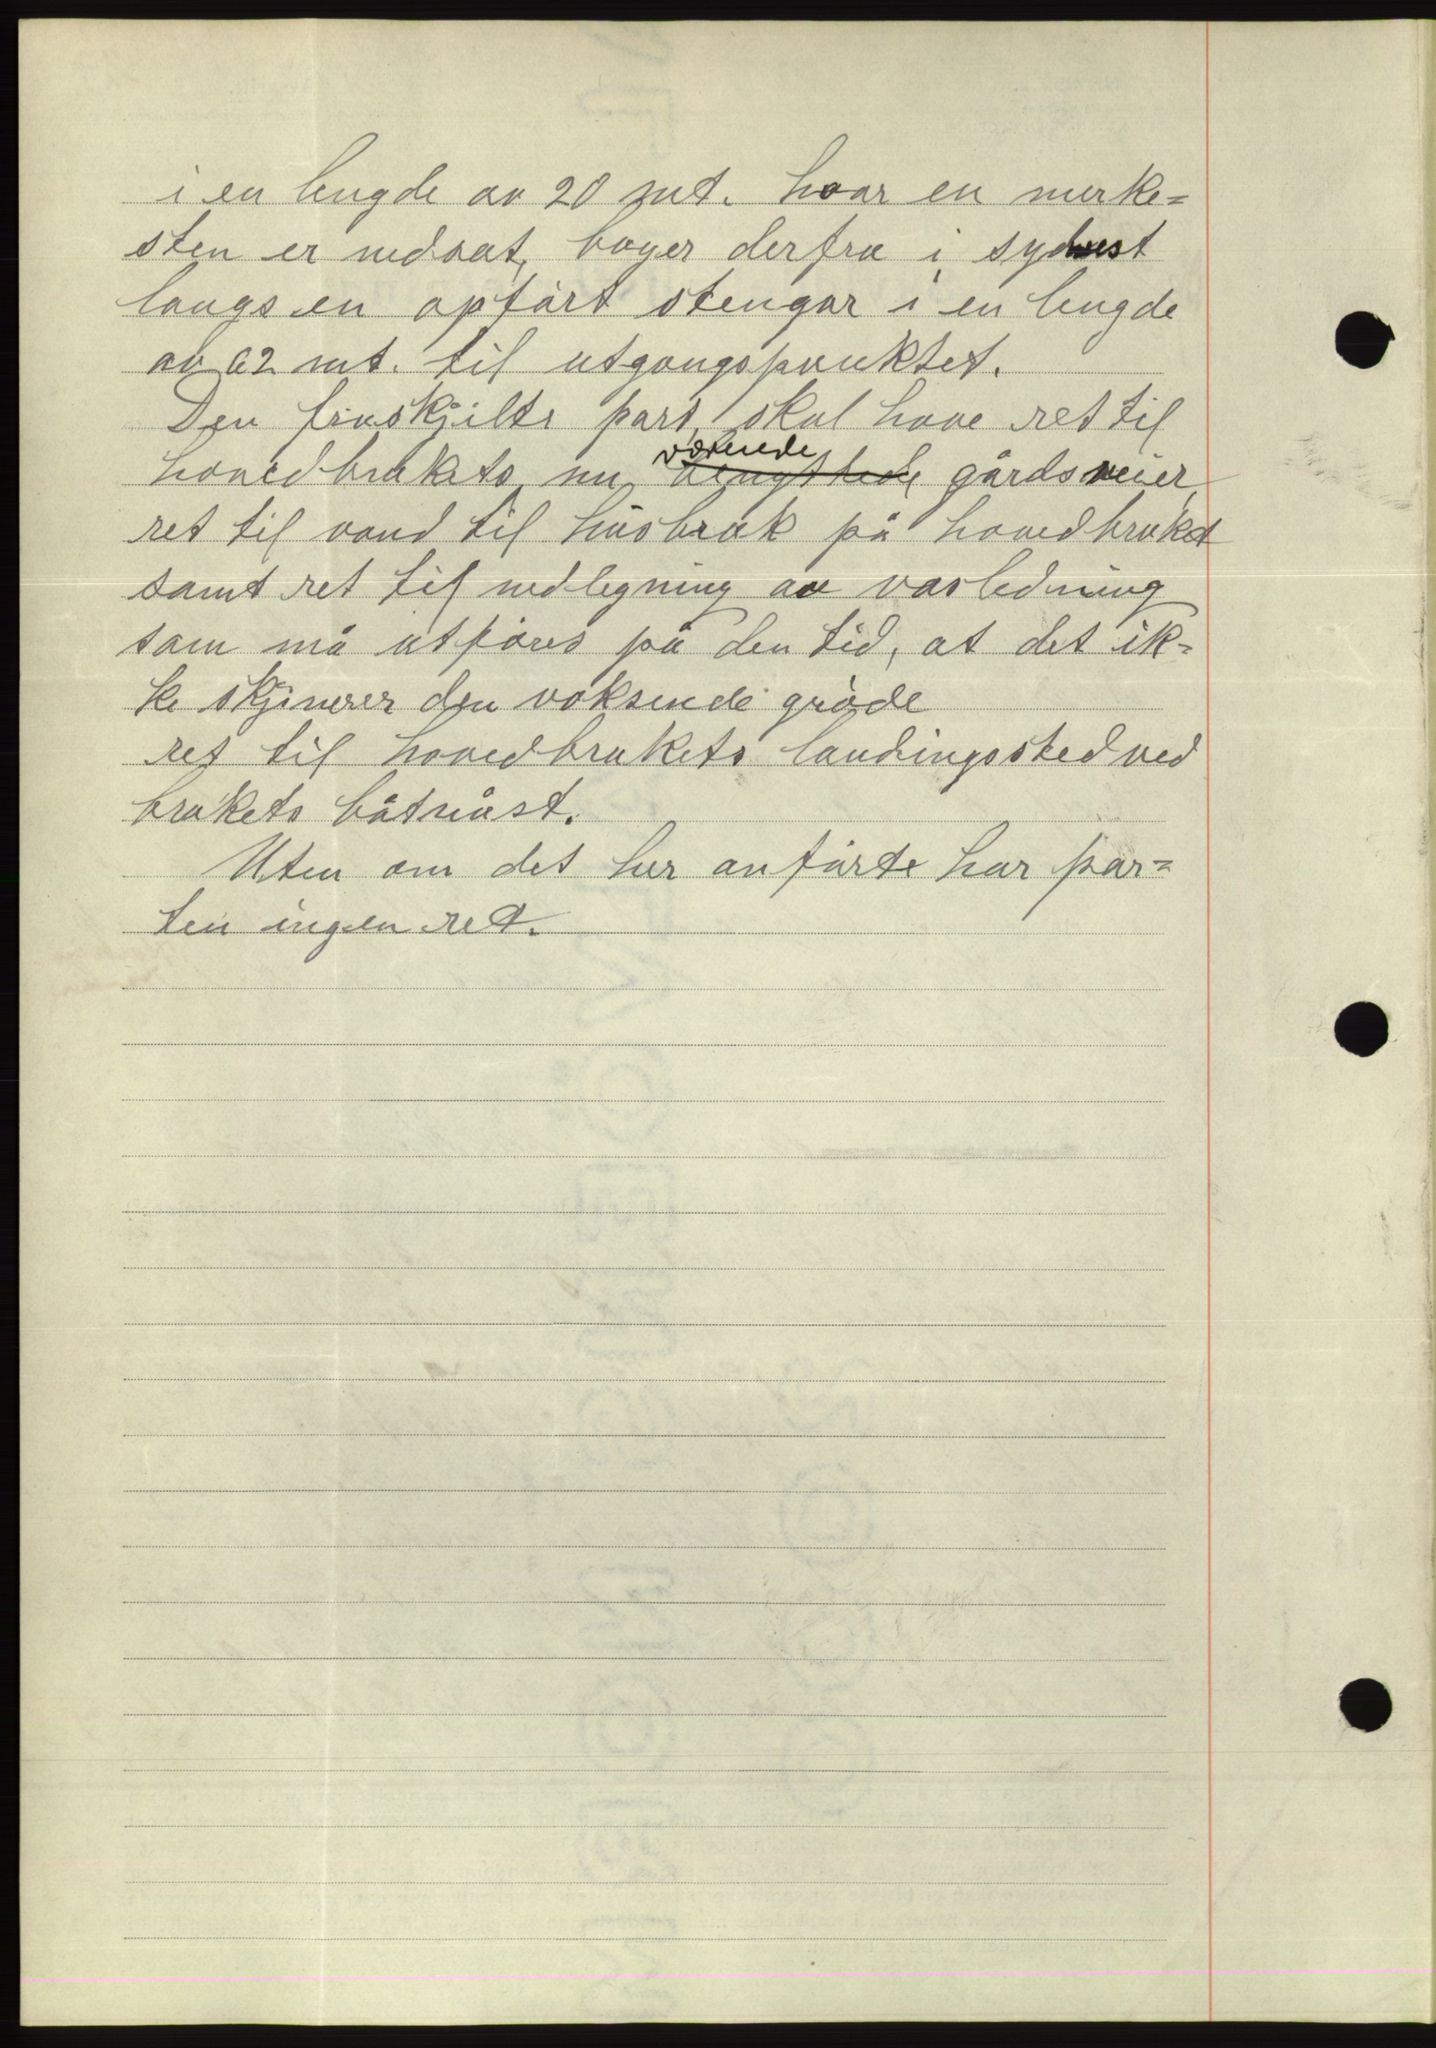 i en lengde av 20 mt. hvor en merke=
sten er nedsat, bøyer derfra i sydvest
langs en opført stengar i en lengde
av 62 mt. til utgangspunktet.
Den fraskjilte part, skal have ret til
hovedbrukets nu værende gårdsveier,
ret til vand til husbruk på hovedbruket
samt ret til nedlegning av vasledning
som må utføres på den tid, at det ik=
ke skjemerer den voksende grøde
ret til hovedbrukets landingssted ved
brukets båtnøst.
Uten om det her anførte har par=
ten ingen ret.